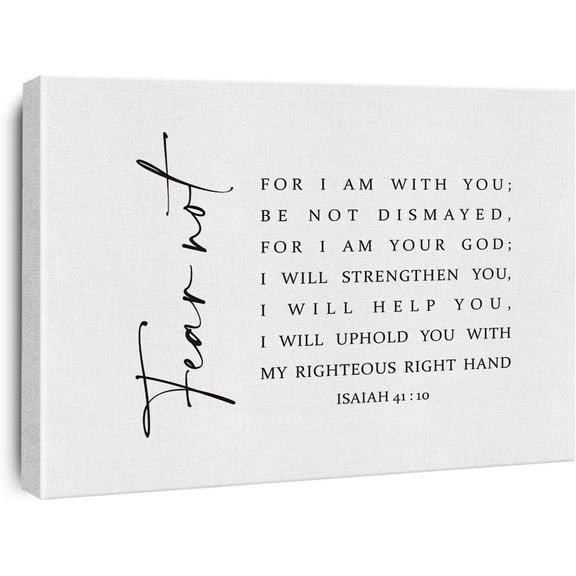 Fear not
FOR I AM WITH YOU;
BE NOT DISMAYED,
FOR I AM YOUR GOD;
I WILL STRENGTHEN YOU,
I WILL HELP YOU,
I WILL UPHOLD YOU WITH
MY RIGHTEOUS RIGHT HAND
ISAIAH 41:10